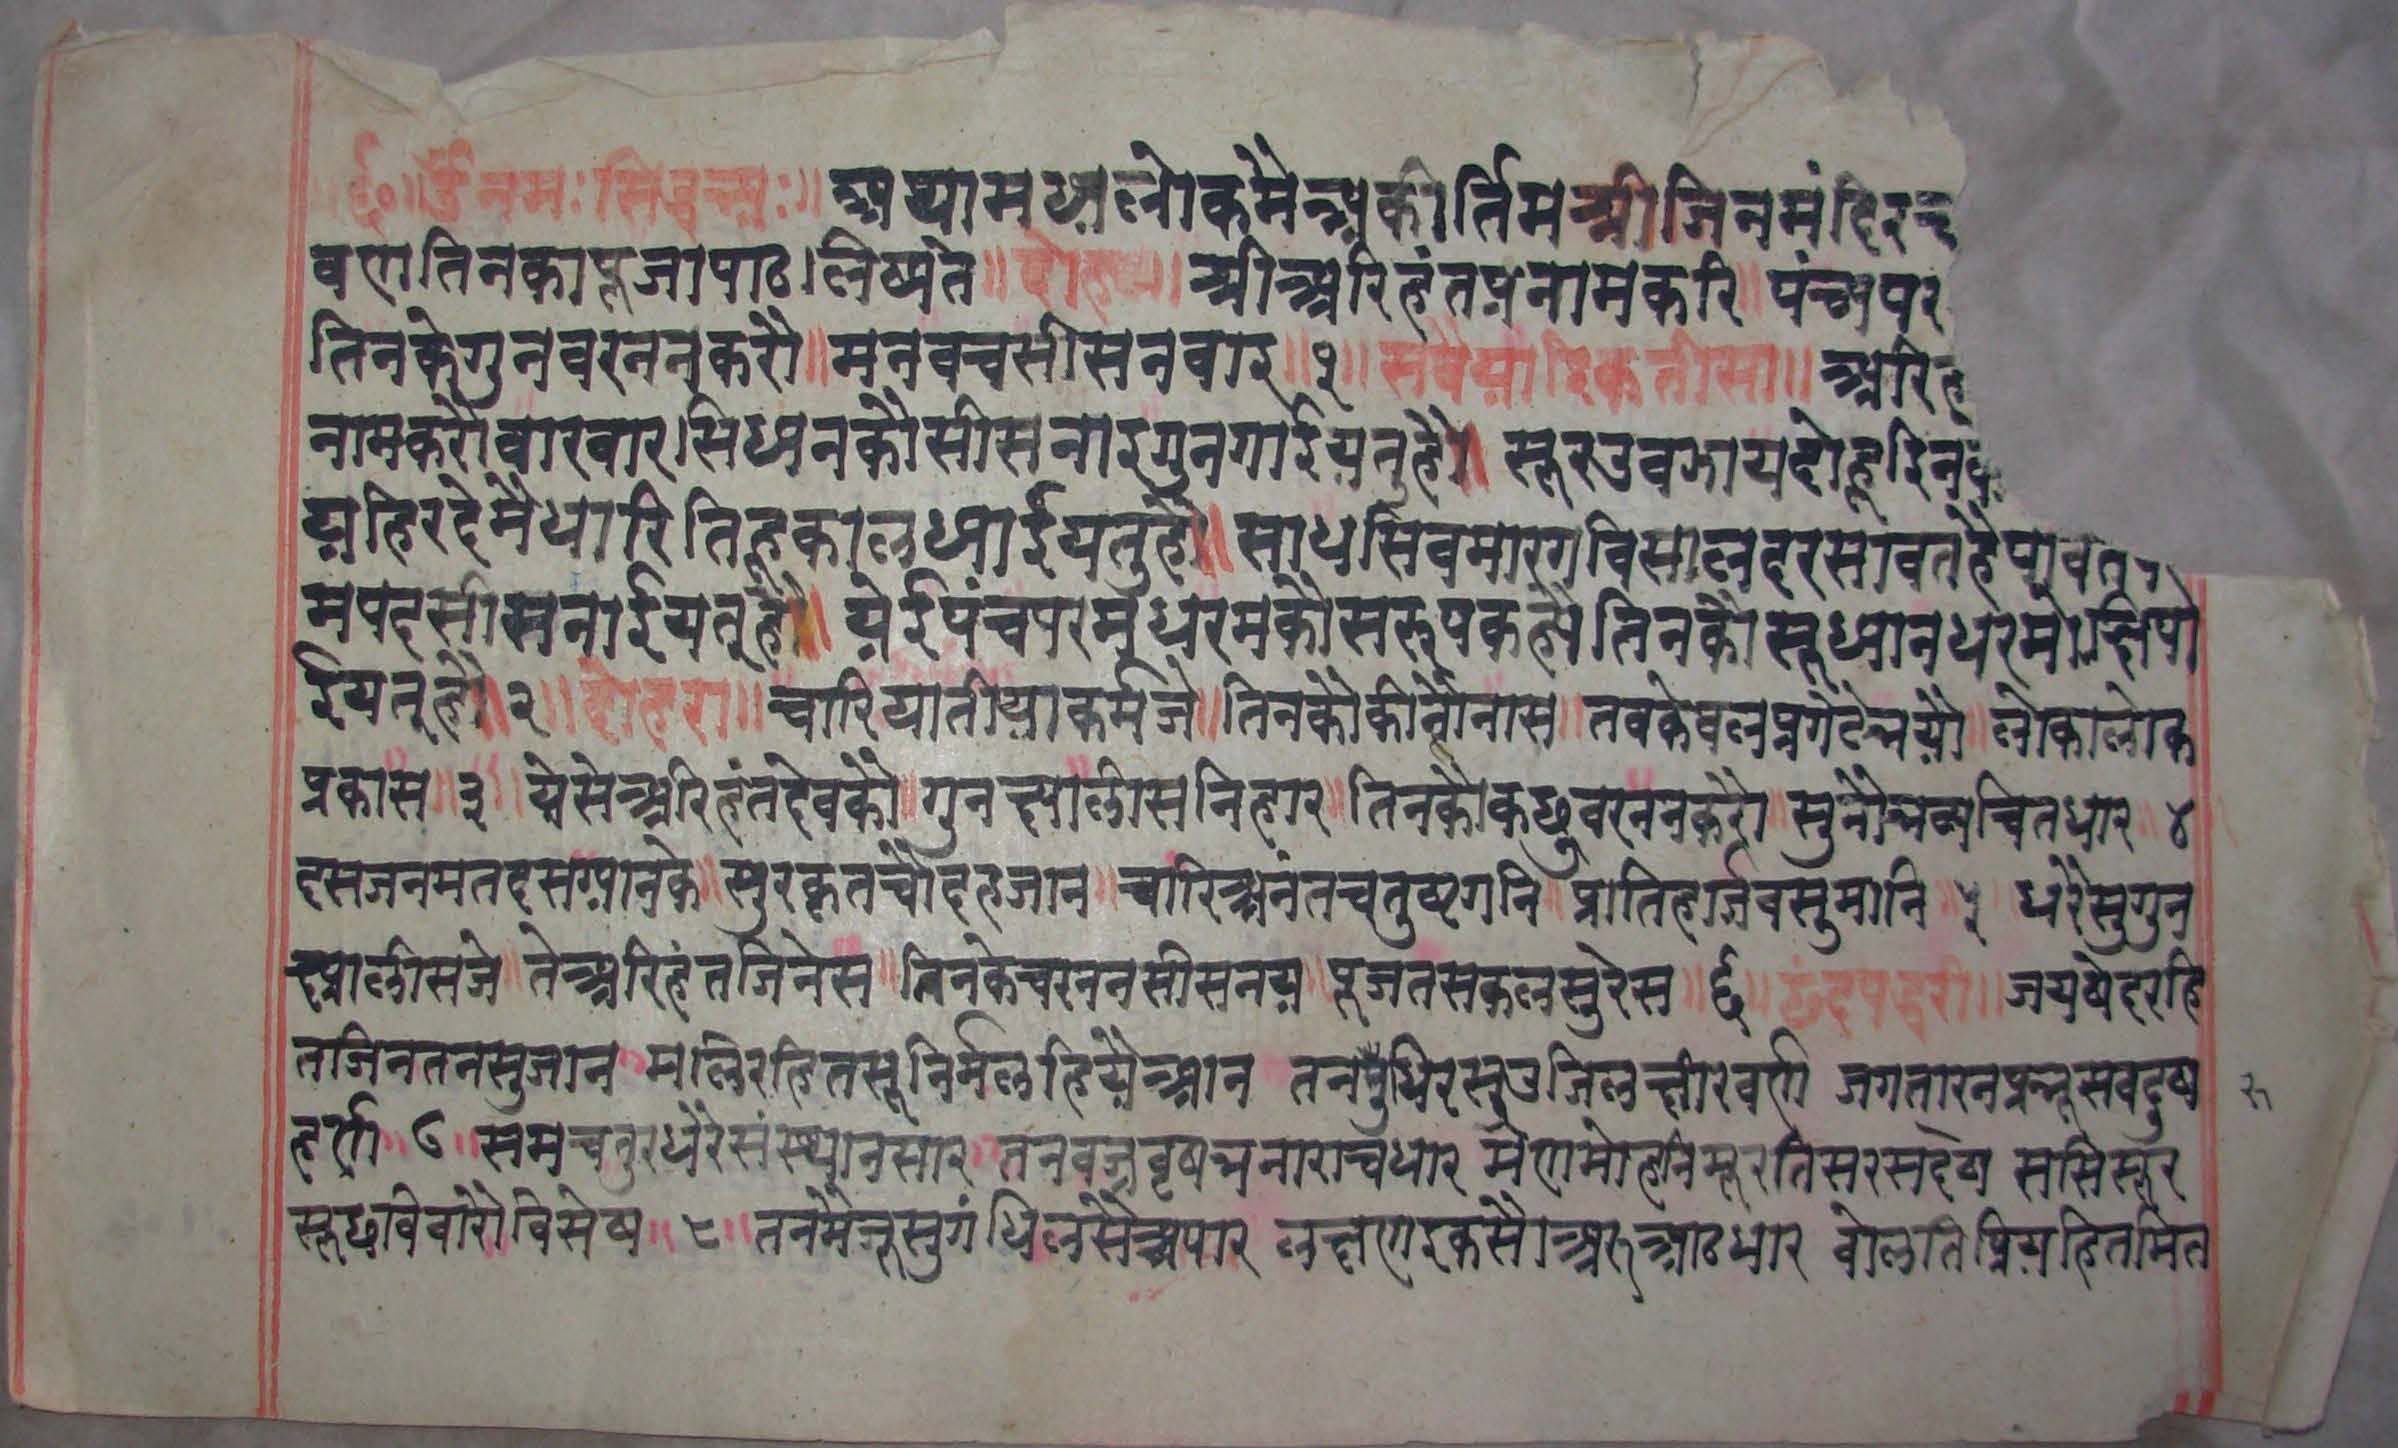 ॥६०॥ ॐ नमः सिद्धेभ्यः॥ अथ्यामध्यलोकमैअकीर्तिमश्रीजिनमंदिर
वर्णातिनकापूजापाठ।लिष्यते॥दोहा॥ श्रीअरिहंतप्रनामकरि॥पंचपर
तिनकेगुनवरननकरौ॥मनवचसीसनवाइ॥१॥सवैयाइकतीसा॥अरिह
नामकरौवारवार।सिधनकौसीसनाइगुनगाईयतुहै॥ सूरउवझायदोहूइनके
यहिरदेमैधारितिहूकालध्याईयतुहै॥साधसिवमारगविसालदरसावतहैपावत
मपदसीसनाईयतुहै॥ येईपंचपरमधरमकौसरूपकहौतिनकौसूध्यानधरमोछिपा
ईयतुहै॥२॥दोहरा॥चारिघातीयाकर्मजे॥तिनकौकीनौनास॥तवकेवलप्रगटेभयौ॥लोकालोक
प्रकास॥३॥येसेअरिहंतदेवकौ॥गुनछ्यालीसनिहार॥तिनकौकछुवरननकरौ॥सुनौभव्यचितधार॥४
दसजनमतदसग्यानके॥सुरकृतचौदहजान॥चारिअनंतचतुष्टगनि॥प्रातिहार्जवसुमानि॥५॥धरैसुगुन
छ्यालीसजे॥तेअरिहंतजिनेस॥तिनकेचरननसीसनय॥पूजतसकलसुरेस॥६॥छंदपद्धरी॥जयषेदरहि
तजिनतनसुजान॥मलिरहितसूनिर्मलहियैआन तनरुधिरसूउजिलछीरवर्ण जगतारनप्रभूसवदुष
हर्ण॥७॥समचतुरधरैसंस्थानसार॥तनवज्रवृषभनाराचधार मैणमोहनिमूरतिसरसदेष ससिसूर
सूछविवारौविसेष॥८॥तनमैजूसुगंधिलसैअपार लछणइकसौअरुआठधार वोलतिप्रियहितमित